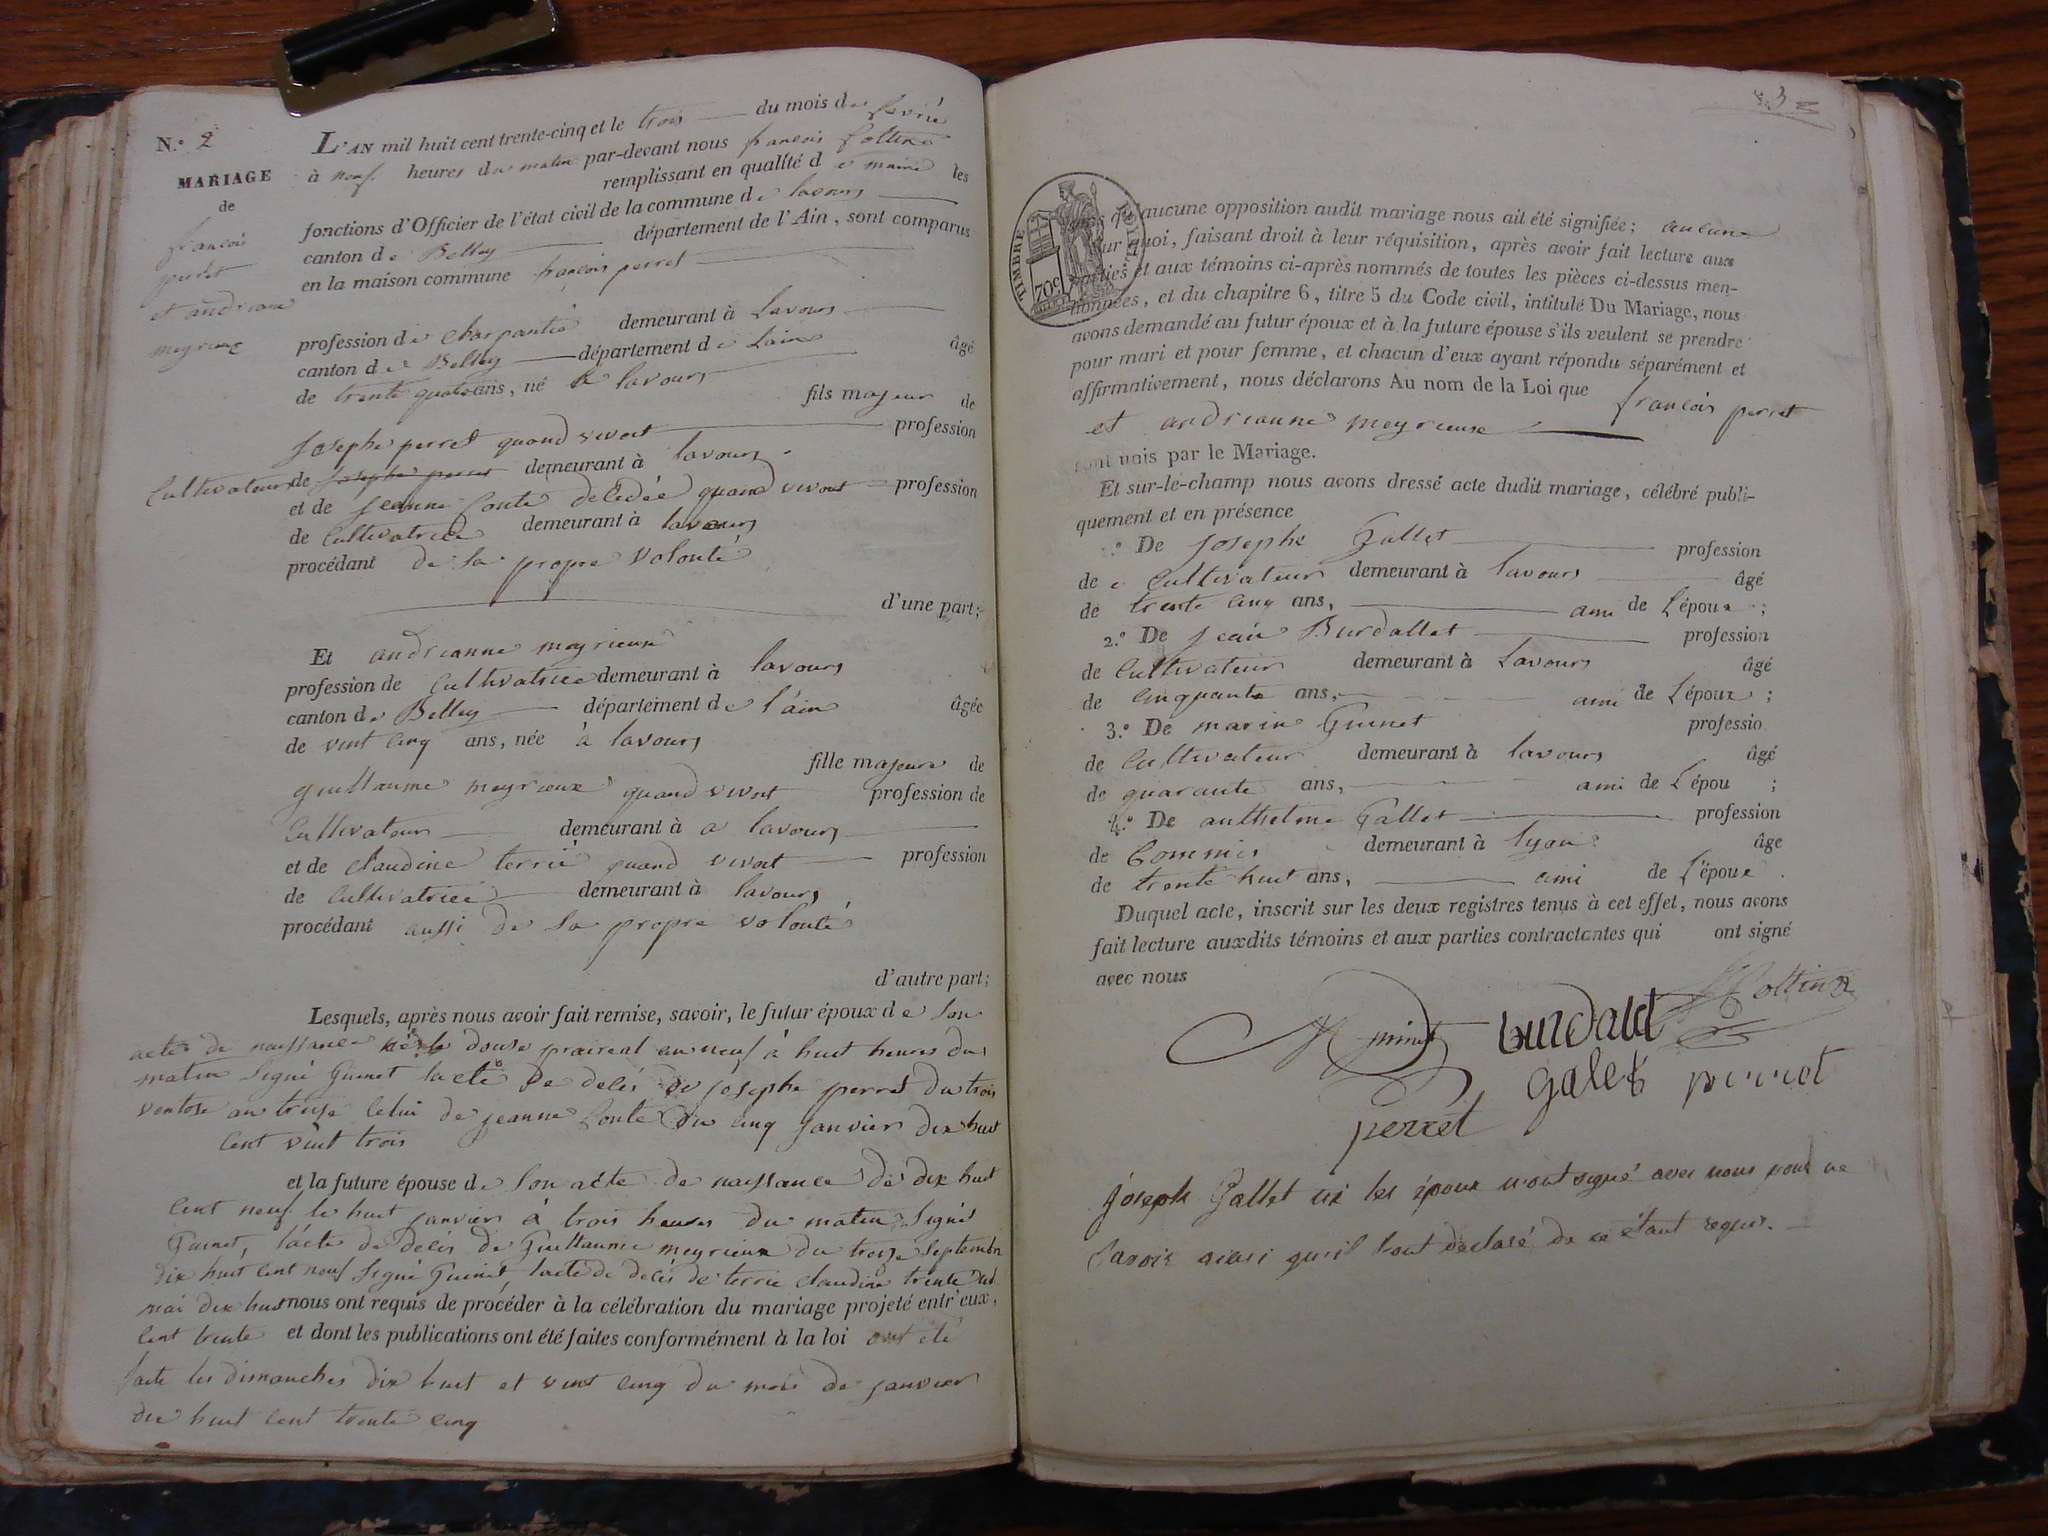 N.o 2
MARIAGE
de
francois
perret
et andreane
meyrieux
L'AN mil huit cent trente-cinq et le trois du mois de fevrie
à neuf heures du matin par-devant nous francois Cottin
remplissant en qualité de maire les
fonctions d'Officier de l'état civil de la commune de lavours
canton de Belley département de l'Ain, sont comparus
en la maison commune françois perret
profession de charpantie demeurant à Lavours
canton de Belley département de Lain âgé
de trente quatre ans, né a lavours
fils majeur de
Josephe perret quand vivoit profession
Cultivateur de josephe perret demeurant à lavours
et de jeanne Conte décédée quand vivoit profession
de Cultivatrice demeurant à lavours
procédant de sa propre volonté
d'une part;
Et andreanne meyrieux
profession de Cultivatrice demeurant à lavours
canton de Belley département de l'ain âgée
de vint cinq ans, née à lavours
fille majeure de
guillaume meyrieux quand vivoit profession de
Cultivateur demeurant à a lavours
et de claudine terrie quand vivoit profession
de Cultivatrice demeurant à lavours
procédant aussi de sa propre volonté
d'autre part;
Lesquels, après nous avoir fait remise, savoir, le futur époux de son
acte de naissance le douse praireal an neuf à huit heures du
matin signé Guinet lacte de delés de josephe perret du trois
ventose an treise celui de jeanne Conte du cinq janvier dix huit
cent vint trois
et la future épouse de son acte de naissance de dix huit
cent neuf le huit janvier à trois heures du matin signé
Guinet, l'acte de delés de Guillaume meyrieux du treise septembre
dix huit cent neuf signé Guinet, lacte de delés de terrie claudine trente
mai dix huit nous ont requis de procéder à la célébration du mariage projeté entr'eux,
cent trente et dont les publications ont été faites conformément à la loi ont été
faite les dimanches dix huit et vint cinq du mois de janvier
dix huit cent trente cinq
3
TIMBRE ROYAL
70c
qu'aucune opposition audit mariage nous ait été signifiée; aucune
sur quoi, faisant droit à leur réquisition, après avoir fait lecture aux
parties et aux témoins ci-après nommés de toutes les pièces ci-dessus men-
tionnées, et du chapitre 6, titre 5 du Code civil, intitulé Du Mariage, nous
avons demandé au futur époux et à la future épouse s'ils veulent se prendre
pour mari et pour femme, et chacun d'eux ayant répondu séparément et
affirmativement, nous déclarons Au nom de la Loi que francois perret
et andreanne meyrieuse
sont unis par le Mariage.
Et sur-le-champ nous avons dressé acte dudit mariage, célébré publi-
quement et en présence
1.o De Josephe Gallet profession
de Cultivateur demeurant à lavours âgé
de trente cinq ans, ami de L'époux;
2.o De Jean Burdallet profession
de Cultivateur demeurant à Lavours âgé
de cinquante ans, ami de L'époux;
3.o De marin Guinet professio
de Cultivateur demeurant à lavours âgé
de quarante ans, ami de L'épou;
4.o De anthelme Gallet profession
de Commis demeurant à Lyon âge
de trente huit ans, ami de L'époux.
Duquel acte, inscrit sur les deux registres tenus à cet effet, nous avons
fait lecture auxdits témoins et aux parties contractantes qui ont signé
avec nous
M guinet Burdalet Cottin
galet perret
perret
joseph Gallet ni les époux n'ont signé avec nous pour ne
Savoir ainsi qu'il l'ont déclaré de ce étant requis.